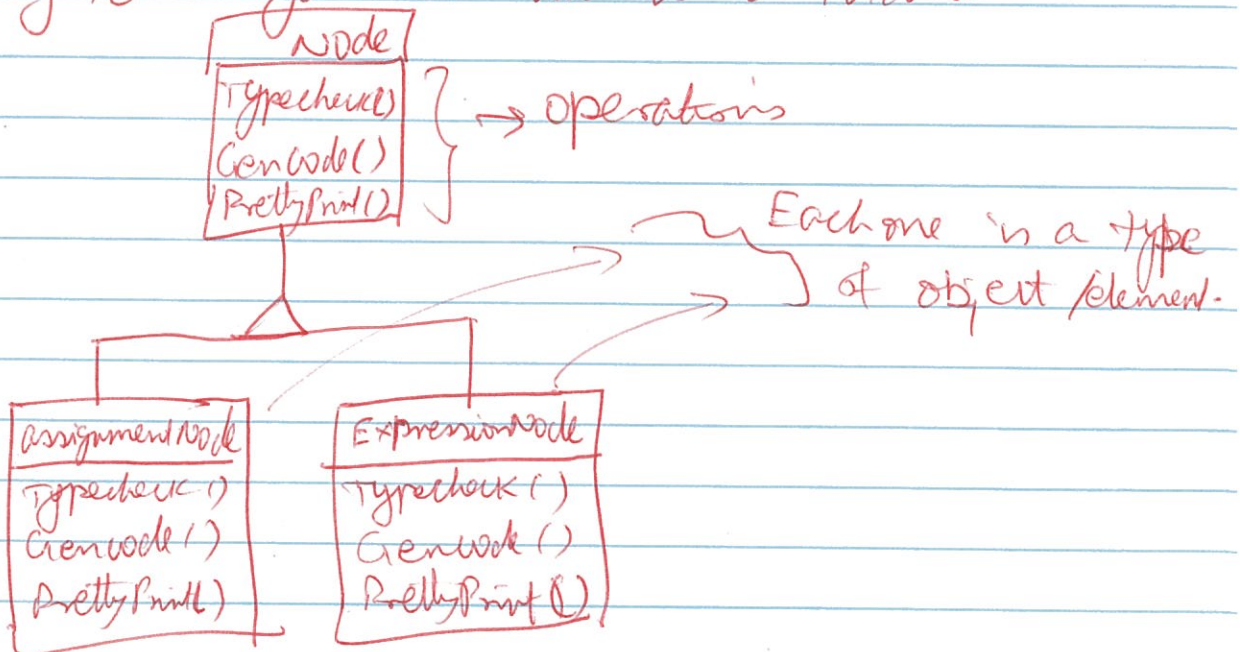 Node
Typecheck()
GenCode()
PrettyPrint()
→ operations
Each one is a type
of object /element.
assignmentNode
Typecheck()
Gencode()
PrettyPrint()
ExpressionNode
Typecheck()
Gencode()
PrettyPrint()